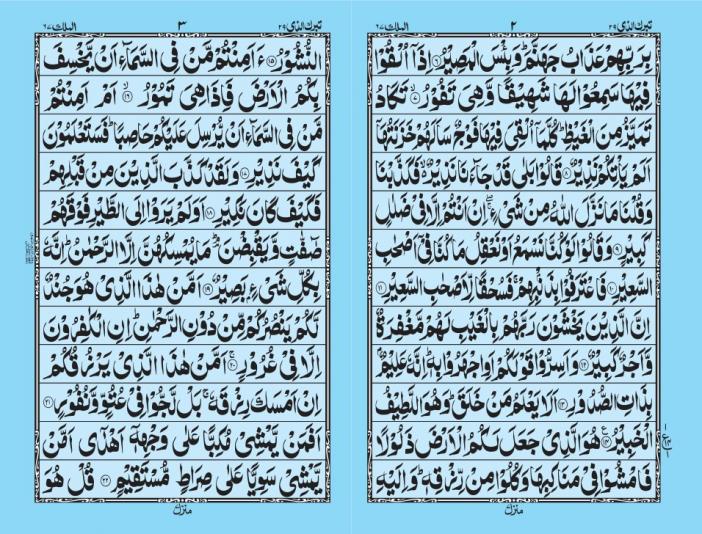 تبٰرك الذی ۲۹
۲
الملك ۶۷
بِرَبِّهِمْ عَذَابُ جَهَنَّمَ ؕ وَبِئْسَ الْمَصِيْرُ ﴿۶﴾ اِذَاۤ اُلْقُوْا
فِيْهَا سَمِعُوْا لَهَا شَهِيْقًا وَّهِیَ تَفُوْرُ ۙ﴿۷﴾ تَكَادُ
تَمَيَّزُ مِنَ الْغَيْظِ ؕ كُلَّمَاۤ اُلْقِیَ فِيْهَا فَوْجٌ سَاَلَهُمْ خَزَنَتُهَاۤ
اَلَمْ يَاْتِكُمْ نَذِيْرٌ ﴿۸﴾ قَالُوْا بَلٰی قَدْ جَآءَنَا نَذِيْرٌ ۙ۬ فَكَذَّبْنَا
وَقُلْنَا مَا نَزَّلَ اللّٰهُ مِنْ شَیْءٍ ۖۚ اِنْ اَنْتُمْ اِلَّا فِیْ ضَلٰلٍ
كَبِيْرٍ ﴿۹﴾ وَقَالُوْا لَوْ كُنَّا نَسْمَعُ اَوْ نَعْقِلُ مَا كُنَّا فِیْۤ اَصْحٰبِ
السَّعِيْرِ ﴿۱۰﴾ فَاعْتَرَفُوْا بِذَنْۢبِهِمْ ۚ فَسُحْقًا لِّاَصْحٰبِ السَّعِيْرِ ﴿۱۱﴾
اِنَّ الَّذِيْنَ يَخْشَوْنَ رَبَّهُمْ بِالْغَيْبِ لَهُمْ مَّغْفِرَةٌ
وَّاَجْرٌ كَبِيْرٌ ﴿۱۲﴾ وَاَسِرُّوْا قَوْلَكُمْ اَوِ اجْهَرُوْا بِهٖ ؕ اِنَّهٗ عَلِيْمٌۢ
بِذَاتِ الصُّدُوْرِ ﴿۱۳﴾ اَلَا يَعْلَمُ مَنْ خَلَقَ ؕ وَهُوَ اللَّطِيْفُ
الْخَبِيْرُ ﴿۱۴﴾ هُوَ الَّذِیْ جَعَلَ لَكُمُ الْاَرْضَ ذَلُوْلًا
فَامْشُوْا فِیْ مَنَاكِبِهَا وَكُلُوْا مِنْ رِّزْقِهٖ ؕ وَاِلَيْهِ
منزل
تبٰرك الذی ۲۹
۳
الملك ۶۷
النُّشُوْرُ ﴿۱۵﴾ ءَاَمِنْتُمْ مَّنْ فِی السَّمَآءِ اَنْ يَّخْسِفَ
بِكُمُ الْاَرْضَ فَاِذَا هِیَ تَمُوْرُ ۙ﴿۱۶﴾ اَمْ اَمِنْتُمْ
مَّنْ فِی السَّمَآءِ اَنْ يُّرْسِلَ عَلَيْكُمْ حَاصِبًا ؕ فَسَتَعْلَمُوْنَ
كَيْفَ نَذِيْرِ ﴿۱۷﴾ وَلَقَدْ كَذَّبَ الَّذِيْنَ مِنْ قَبْلِهِمْ
فَكَيْفَ كَانَ نَكِيْرِ ﴿۱۸﴾ اَوَلَمْ يَرَوْا اِلَی الطَّيْرِ فَوْقَهُمْ
صٰٓفّٰتٍ وَّيَقْبِضْنَ ؔۘؕ مَا يُمْسِكُهُنَّ اِلَّا الرَّحْمٰنُ ؕ اِنَّهٗ
بِكُلِّ شَیْءٍۭ بَصِيْرٌ ﴿۱۹﴾ اَمَّنْ هٰذَا الَّذِیْ هُوَ جُنْدٌ
لَّكُمْ يَنْصُرُكُمْ مِّنْ دُوْنِ الرَّحْمٰنِ ؕ اِنِ الْكٰفِرُوْنَ
اِلَّا فِیْ غُرُوْرٍ ۚ﴿۲۰﴾ اَمَّنْ هٰذَا الَّذِیْ يَرْزُقُكُمْ
اِنْ اَمْسَكَ رِزْقَهٗ ۚ بَلْ لَّجُّوْا فِیْ عُتُوٍّ وَّنُفُوْرٍ ﴿۲۱﴾
اَفَمَنْ يَّمْشِیْ مُكِبًّا عَلٰی وَجْهِهٖۤ اَهْدٰۤی اَمَّنْ
يَّمْشِیْ سَوِيًّا عَلٰی صِرَاطٍ مُّسْتَقِيْمٍ ﴿۲۲﴾ قُلْ هُوَ
منزل